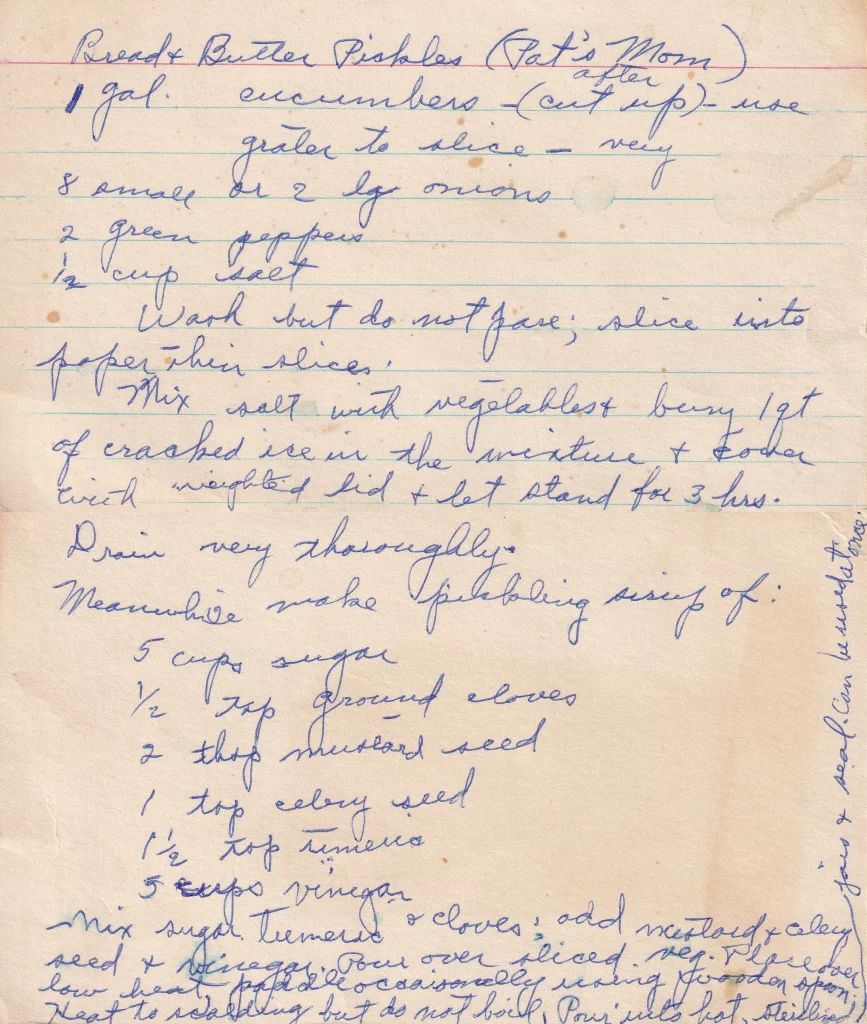 Bread & Butter Pickles (Pat's Mom)
after
1 gal. cucumbers - (cut up) - use
grater to slice - very
8 small or 2 lg onions
2 green peppers
1/2 cup salt
Wash but do not pare; slice into
paper thin slices.
Mix salt with vegetables & bury 1 qt
of cracked ice in the mixture & cover
with weighted lid & let stand for 3 hrs.
Drain very thoroughly.
Meanwhile make pickling sirup of:
5 cups sugar
1/2 tsp ground cloves
2 tbsp mustard seed
1 tsp celery seed
1 1/2 tsp tumeric
5 cups vinegar
Mix sugar tumeric & cloves; add mustard & celery
seed & vinegar. Pour over sliced veg. Place over
low heat, paddle occaisonally using wooden spoon;
Heat to scalding but do not boil, Pour into hot, sterilized
jars & seal. Can be used at once.